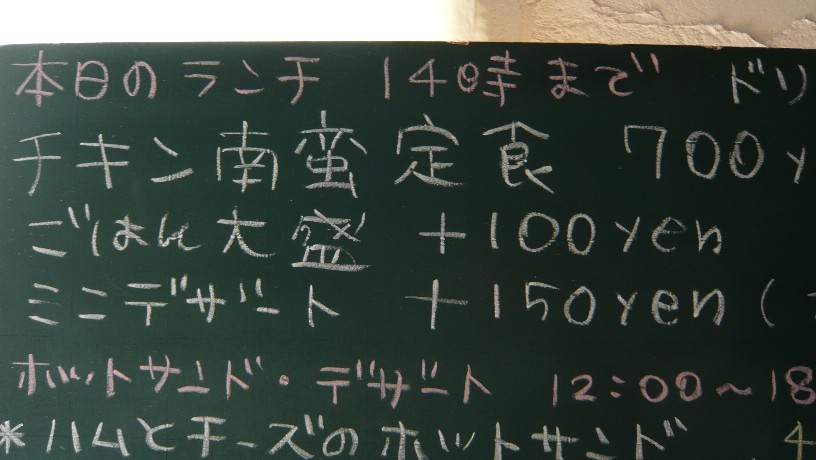 本日のランチ 14時まで ドリ
チキン南蛮定食 700y
ごはん大盛 +100yen
ミニデザート +150yen(
ホットサンド・デザート 12:00~18
*ハムとチーズのホットサンド 4